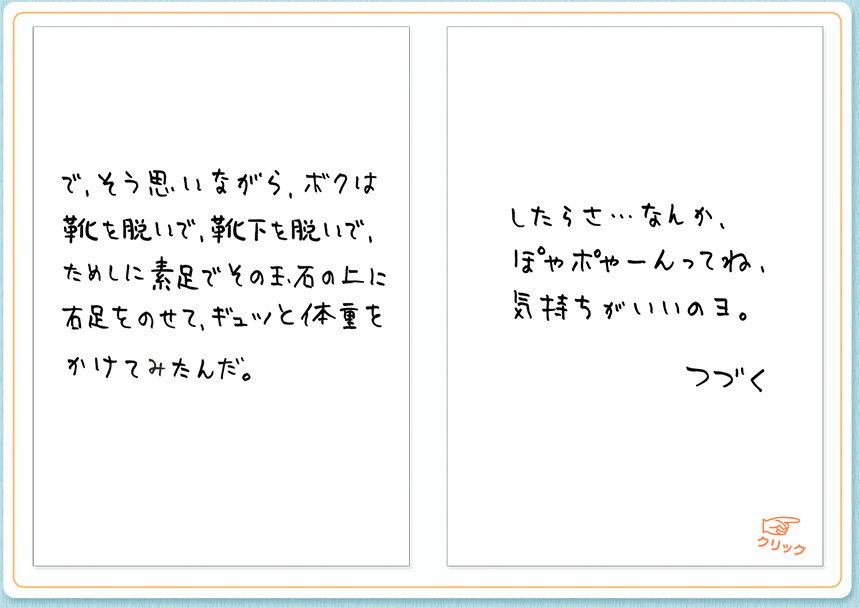 で,そう思いながら,ボクは
靴を脱いで,靴下を脱いで,
ためしに素足でその玉石の上に
右足をのせて,ギュッと体重を
かけてみたんだ。
したらさ…なんか、
ぽやポやーんってね、
気持ちがいいのヨ。
つづく
クリック